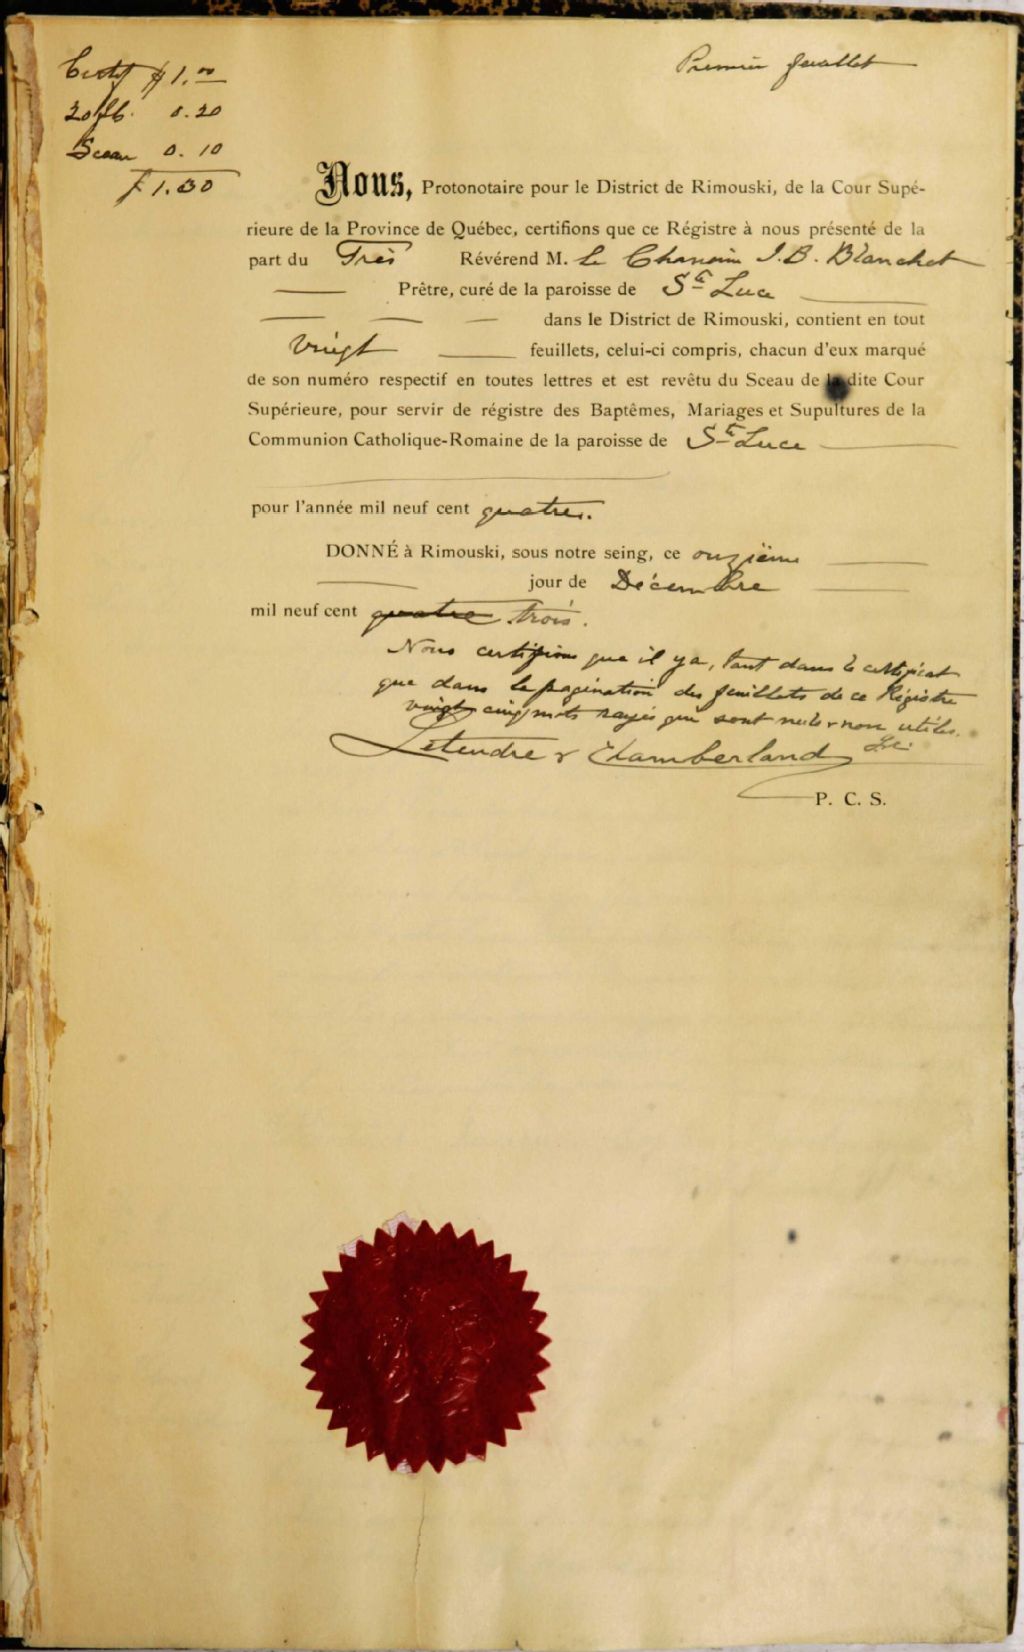 Premier feuillet
Certif $1.00
20 fts. 0.20
Sceau 0.10
$1.30
Nous, Protonotaire pour le District de Rimouski, de la Cour Supé-
rieure de la Province de Québec, certifions que ce Régistre à nous présenté de la
part du Très Révérend M. le Chanoine J. B. Blanchet
Prêtre, curé de la paroisse de Ste Luce
dans le District de Rimouski, contient en tout
vingt feuillets, celui-ci compris, chacun d'eux marqué
de son numéro respectif en toutes lettres et est revêtu du Sceau de la dite Cour
Supérieure, pour servir de régistre des Baptêmes, Mariages et Supultures de la
Communion Catholique-Romaine de la paroisse de Ste Luce
pour l'année mil neuf cent quatre.
DONNÉ à Rimouski, sous notre seing, ce onzième
jour de Décembre
mil neuf cent quatre trois.
Nous certifions que il y a, tant dans le certificat
que dans la pagination des feuillets de ce Régistre
vingt cinq mots rayés qui sont nuls & non utiles.
Letendre & Chamberland
P. C. S.